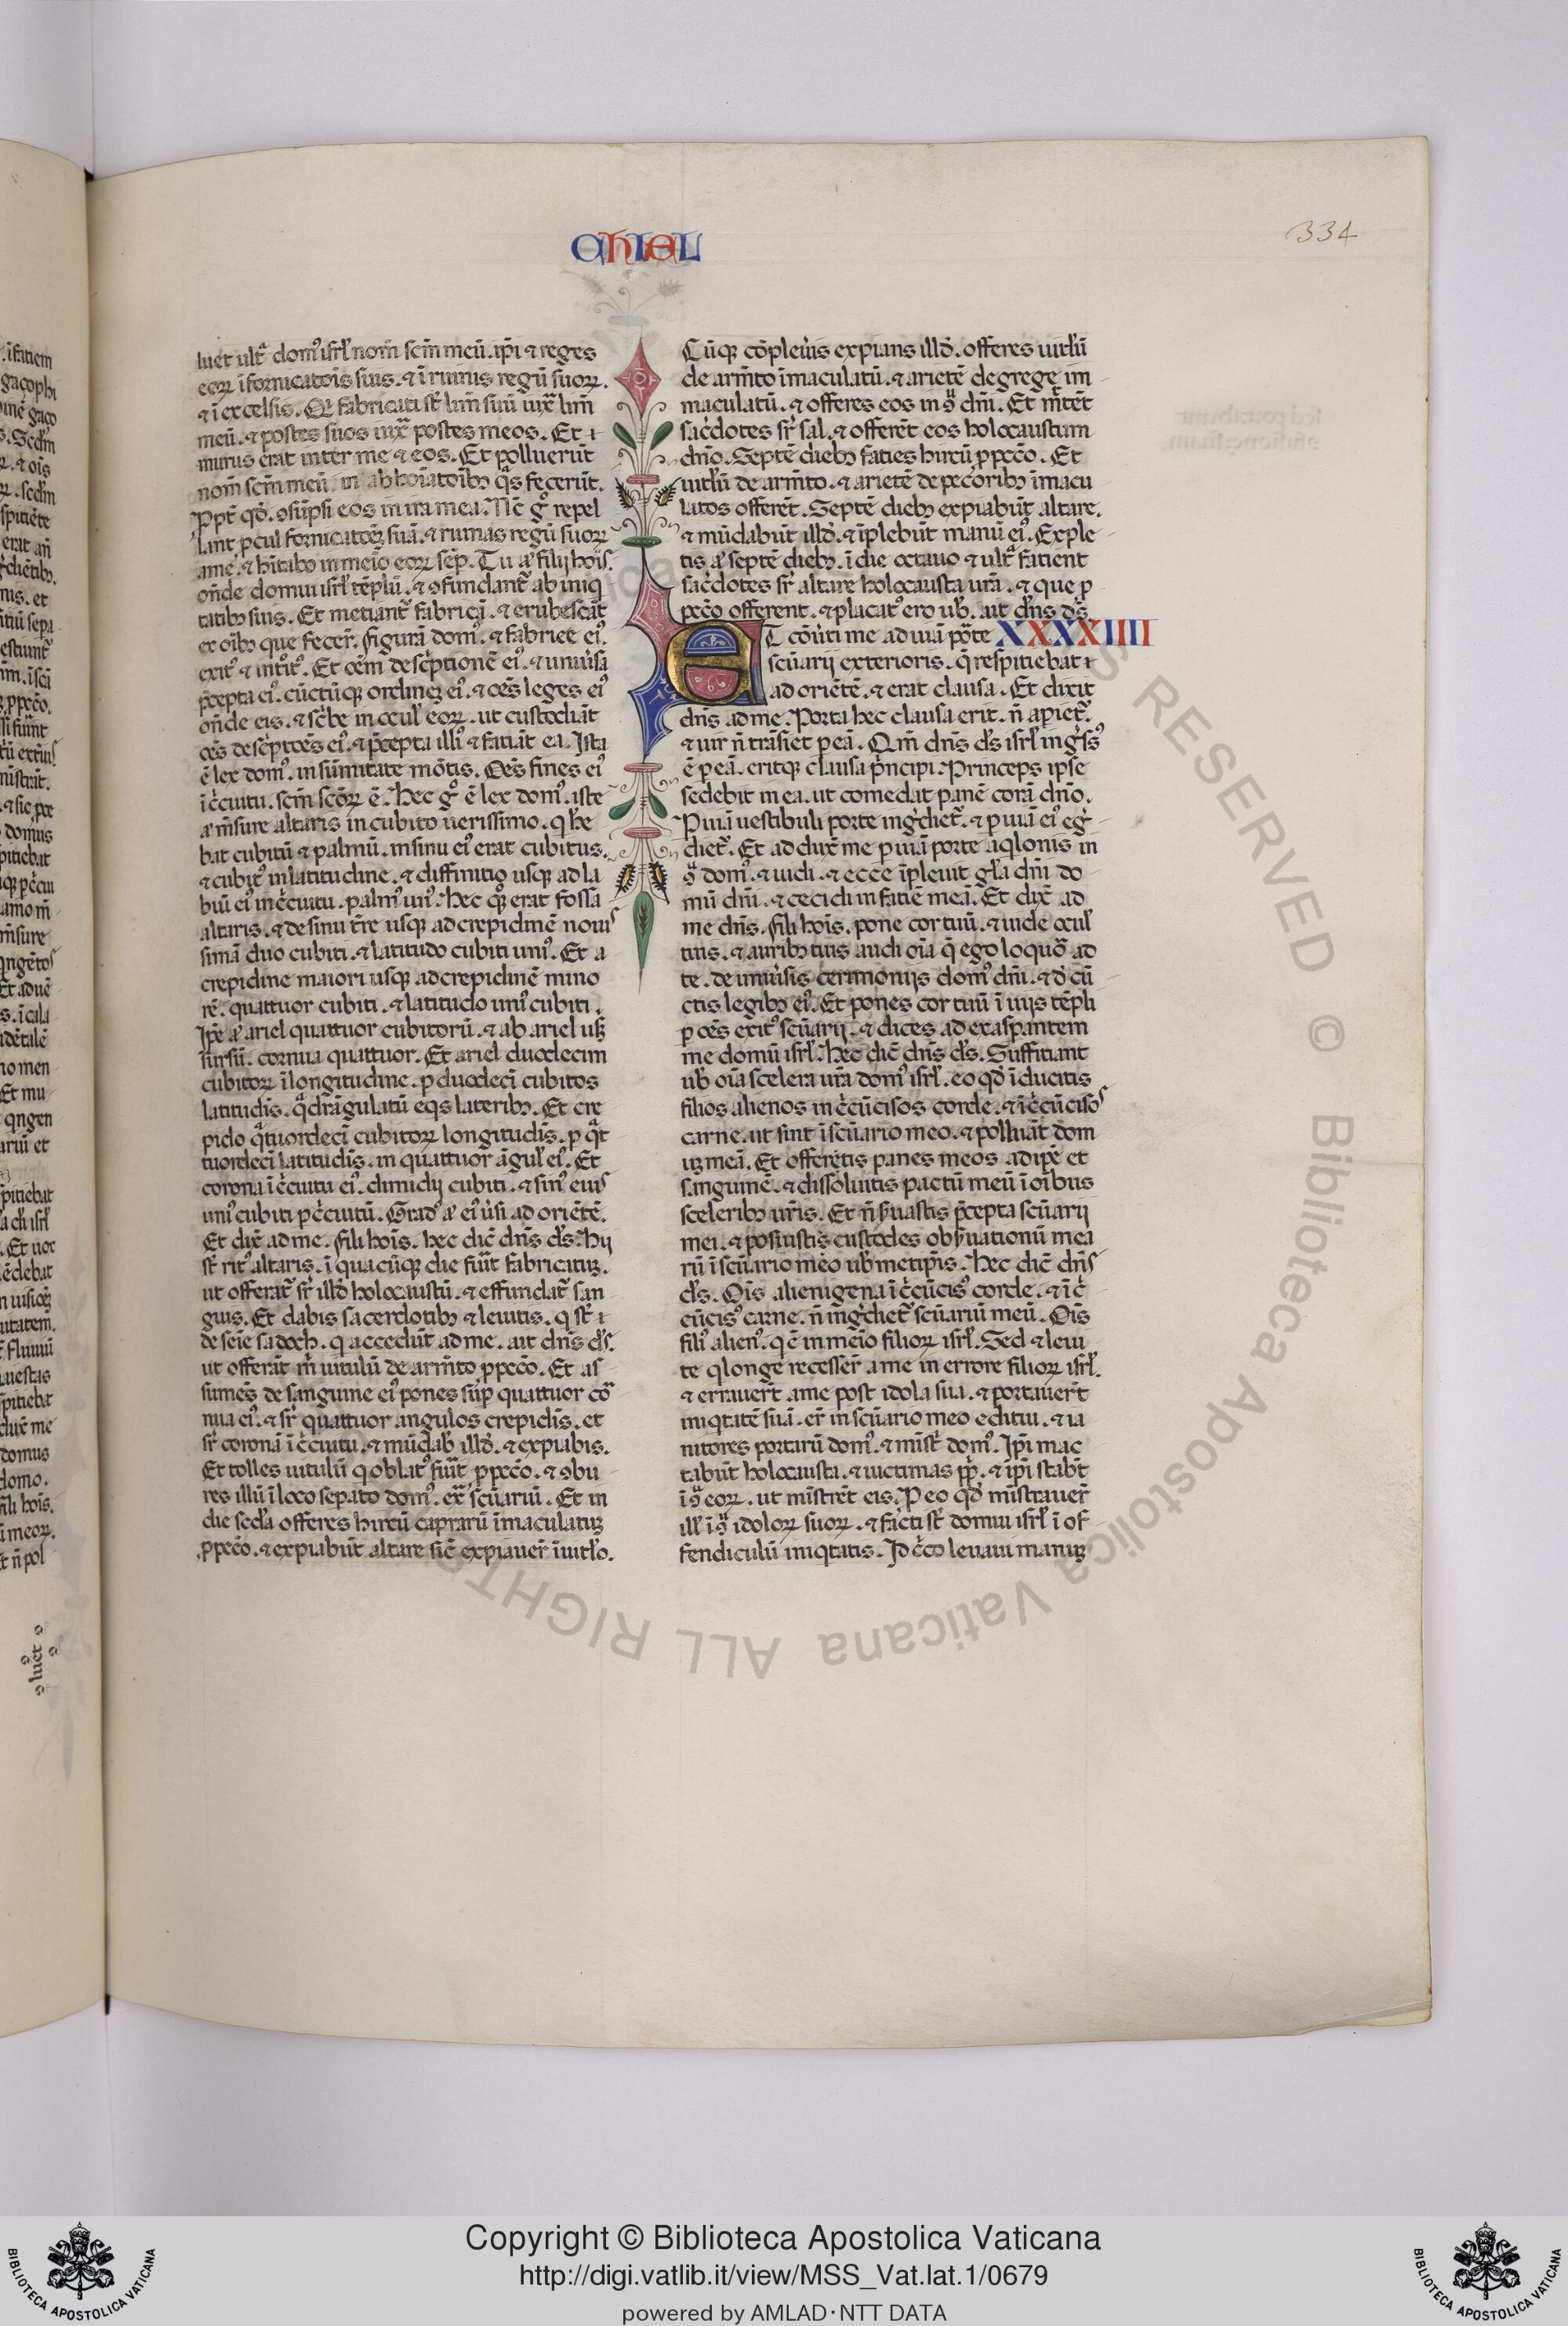 CHIEL
334
luet ultᵃ domꝰ isrł nom̄ scm̄ meū. ip̄i ⁊ reges
eoꝝ ī fornicatōis suis. ⁊ ī ruinis regū suoꝝ.
⁊ ī excelsis. Qꝛ fabricati st̄ lim̄ suū iuxᵃ lim̄
meū. ⁊ postes suos iuxᵃ postes meos. Et ⁊
murus erat inter me ⁊ eos. Et polluerūt
nom̄ scm̄ meū in abhoīatōibꝫ qᵃs fecerūt.
Ppt̄ qd̓. ꝯsūpsi eos in ira mea. Nc̄ gᵒ repel
lant ꝓcul fornicatōeꝫ suā. ⁊ ruinas regū suoꝝ
a me. ⁊ hītabo in meīo eoꝝ sēp. Tu aͤ fili hoīs.
on̄de domui isrł tēplū. ⁊ ꝯfundant᷑ ab iniq
tatibꝫ suis. Et metiant᷑ fabricā. ⁊ erubescāt
ex oībꝫ que fecer̄. figurā domꝰ. ⁊ fabrice eiꝰ.
exitꝰ ⁊ intͥtꝰ. Et oēm descͥptionē eiꝰ. ⁊ uniūsa
p̄cepta eiꝰ. cūctūqꝫ ordineꝫ eiꝰ. ⁊ oēs leges eiꝰ
on̄de eis. ⁊ scͥbe in oculꝭ eoꝝ. ut custodiāt
oēs descͥptōes eiꝰ. ⁊ p̄cepta illiꝰ ⁊ fatiāt ea. Ista
ē lex domꝰ. in sūmitate mōtis. Oēs fines eiꝰ
ī cͥcuitu. scm̄ scōꝝ ē. Hec gᵒ ē lex domꝰ. iste
aͤ m̄sure altaris in cubito uerissimo. q he
bat cubitū ⁊ palmū. in sinu eiꝰ erat cubitus.
⁊ cubitꝰ in latitudine. ⁊ diffinitio usqꝫ ad la
biū eiꝰ in cͥcuitu. palmꝰ unꝰ. Hec qꝫ erat fossa
altaris. ⁊ de sinu tr̄e usqꝫ ad crepidinē noui
simā duo cubiti. ⁊ latitudo cubiti uniꝰ. Et a
crepidine maiori usqꝫ ad crepidinē mino
rē. quattuor cubiti. ⁊ latitudo uniꝰ cubiti.
Ip̄e aͤ ariel quattuor cubitorū. ⁊ ab ariel usqꝫ
sursū. cornua quattuor. Et ariel duodecim
cubitoꝝ ī longitudine. ꝑ duodecī cubitos
latitudīs. qᵃdrāgulatū eqs lateribꝫ. Et cre
pido qᵃtuordecī cubitoꝝ longitudīs. ꝑ qᵃt
tuordecī latitudīs. in quattuor āgulꝭ eiꝰ. Et
corona ī cͥcuitu eiꝰ. dimidij cubiti. ⁊ sinꝰ eius
uniꝰ cubiti ꝑ cͥcuitū. Gradꝰ aͤ eiꝰ ūsi ad oriētē.
Et dix̄ ad me. fili hoīs. hec dic̄ dn̄s ds̄. Hij
st̄ ritꝰ altaris. ī quacūqꝫ die fūit fabricatuꝫ.
ut offerat᷑ sr̄ illd̓ holocaustū. ⁊ effundat᷑ san
guis. Et dabis sacerdotibꝫ ⁊ leuitis. q st̄ ⁊
de seīe sadoch. q accedūt ad me. ait dn̄s ds̄.
ut offerāt m̄ uitulū de armto ꝓ pccō. Et as
sumēs de sanguine eiꝰ pones suꝑ quattuor cor
nua eiꝰ. ⁊ sr̄ quattuor angulos crepidīs. et
sr̄ coronā ī cͥcuitu. ⁊ mūdab̄ illd̓. ⁊ expiabis.
Et tolles uitulū q oblatꝰ fūit ꝓ pccō. ⁊ ꝯbu
res illū ī loco seꝑato domꝰ. exᵃ scūariū. Et in
die secd̄a offeres hircū capraꝝ īmaculatuꝫ
ꝓ pccō. ⁊ expiabūt altare sic̄ expiauer̄ ī uitło.
Cūqꝫ cōpleūis expians illd̓. offeres uitłū
de armto īmaculatū. ⁊ arietē de grege im
maculatū. ⁊ offeres eos in ꝯᵘ dn̄i. Et mͥtēt
sac̄dotes sr̄ sal. ⁊ offerēt eos holocaustum
dn̄o. Septē diebꝫ faties hircū ꝓ pccō. Et
uitłū de armto. ⁊ arietē de pecoribꝫ īmacu
latos offerēt. Septē diebꝫ expiabūt altare.
⁊ mūdabūt illd̓. ⁊ īplebūt manū eiꝰ. Exple
tis aͤ septē diebꝫ. ī die octauo ⁊ ultᵃ fatient
sac̄dotes sr̄ altare holocausta ur̄a. ⁊ que ꝑ
pccō offerent. ⁊ placatꝰ ero ub̄. ait dn̄s ds̄.
ET cōūti me ad uiā porte XXXXIIII
scūarij exterioris. q̄ respitiebat ⁊
ad oriētē. ⁊ erat clausa. Et dixit
dn̄s ad me. Porta hec clausa erit. n̄ aꝑiet᷑.
⁊ uir n̄ trāsiet ꝑ eā. Qm̄ dn̄s ds̄ isrł ingͤssꝰ
ē ꝑ eā. eritqꝫ clausa pͥncipi. Princeps ipse
sedebit in ea. ut comedat panē corā dn̄o.
P uiā uestibuli porte ingͤdiet᷑. ⁊ ꝑ uiā eiꝰ egͤ
diet᷑. Et adduxͭ me ꝑ uiā porte aqlonis in
ꝯᵘ domꝰ. ⁊ uidi. ⁊ ecce īpleuit głia dn̄i do
mū dn̄i. ⁊ cecidi in fatiē meā. Et dix̄ ad
me dn̄s. fili hoīs. pone cor tuū. ⁊ uide oculꝭ
tuis. ⁊ auribꝫ tuis audi oīa q̄ ego loquor ad
te. de uniūsis cerimonijs domꝰ dn̄i. ⁊ d̓ cū
ctis legibꝫ eiꝰ. Et pones cor tuū ī uijs tēpli
ꝑ oēs exitꝰ scūarij. ⁊ dices ad exasꝑantem
me domū isrł. Hec dic̄ dn̄s ds̄. Suffitiant
ub̄ oīa scelera ur̄a domꝰ isrł. eo qd̓ īducitis
filios alienos incͥcūcisos corde. ⁊ īcͥcūcisos
carne. ut sint ī scūario meo. ⁊ polluāt dom
uꝫ meā. Et offertis panes meos adipē et
sanguinē. ⁊ dissoluitis pactū meū ī oībus
sceleribꝫ ur̄is. Et n̄ seruastis p̄cepta scūarij
mei. ⁊ posuistis custodes obseruationū mea
rū ī scūario meo ub̄ metip̄is. Hec dic̄ dn̄s
ds̄. Oīs alienigena īcͥcūcisꝰ corde. ⁊ īcͥ
cūcisꝰ carne. n̄ ingͤdiet᷑ scūariū meū. Oīs
filiꝰ alienꝰ. q ē in meīo filioꝝ isrł. Sed ⁊ leui
te q longe recesser̄ a me in errore filioꝝ isrł.
⁊ errauer̄t a me post idola sua. ⁊ portauer̄t
iniqtatē suā. er̄t in scūario meo editui. ⁊ ia
nitores portarū domꝰ. ⁊ mīstͥ domꝰ. Ip̄i mac
tabūt holocausta. ⁊ uictimas ppl̄i. ⁊ ip̄i stabūt
ī ꝯᵘ eoꝝ. ut mīstrēt eis. P eo qd̓ mīstrauer̄
illꝭ ī ꝯᵘ idoloꝝ suoꝝ. ⁊ facti st̄ domui isrł ī of
fendiculū iniqtatis. Idcͥco leuaui manuꝫ
Copyright © Biblioteca Apostolica Vaticana
http://digi.vatlib.it/view/MSS_Vat.lat.1/0679
powered by AMLAD·NTT DATA
BIBLIOTECA APOSTOLICA VATICANA
BIBLIOTECA APOSTOLICA VATICANA
ALL RIGHTS RESERVED © Biblioteca Apostolica Vaticana